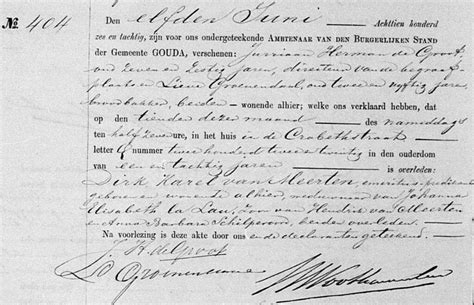 № 404
Den elfden Juni Achttien honderd
zes en tachtig, zijn voor ons ondergeteekende AMBTENAAR VAN DEN BURGERLIJKEN STAND
der Gemeente GOUDA, verschenen: Jurriaan Herman de Groot,
oud zeven en zestig jaren, directeur van de begraaf
plaats en Lieve Groenendaal, oud twee en vijftig jaren,
broodbakker, beiden wonende alhier; welke ons verklaard hebben, dat
op den tienden dezer maand des namiddags
ten half zeven ure, in het huis in de Crabethstraat
letter Q nummer twee honderd twee en twintig in den ouderdom
van een en tachtig jaren is overleden:
Dirk Karel van Meerten, emeritus predikant
geboren en wonende alhier, weduwnaar van Johanna
Elisabeth la Lau, zoon van Hendrik van Meerten
en Anna Barbara Schilperoord, beiden overleden.
Na voorlezing is deze akte door ons en de declaranten geteekend.
J H de Groot